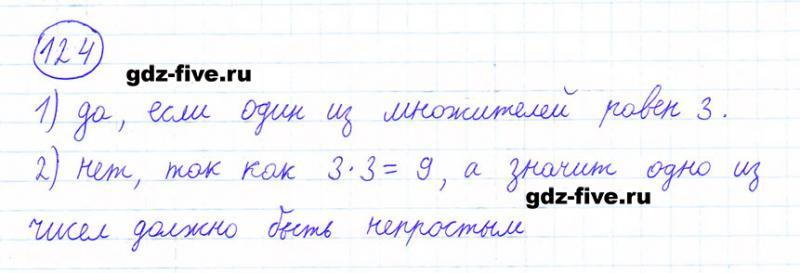 124
gdz-five.ru
1) да, если один из множителей равен 3.
2) нет, так как 3·3=9, а значит одно из
gdz-five.ru
чисел должно быть непростым